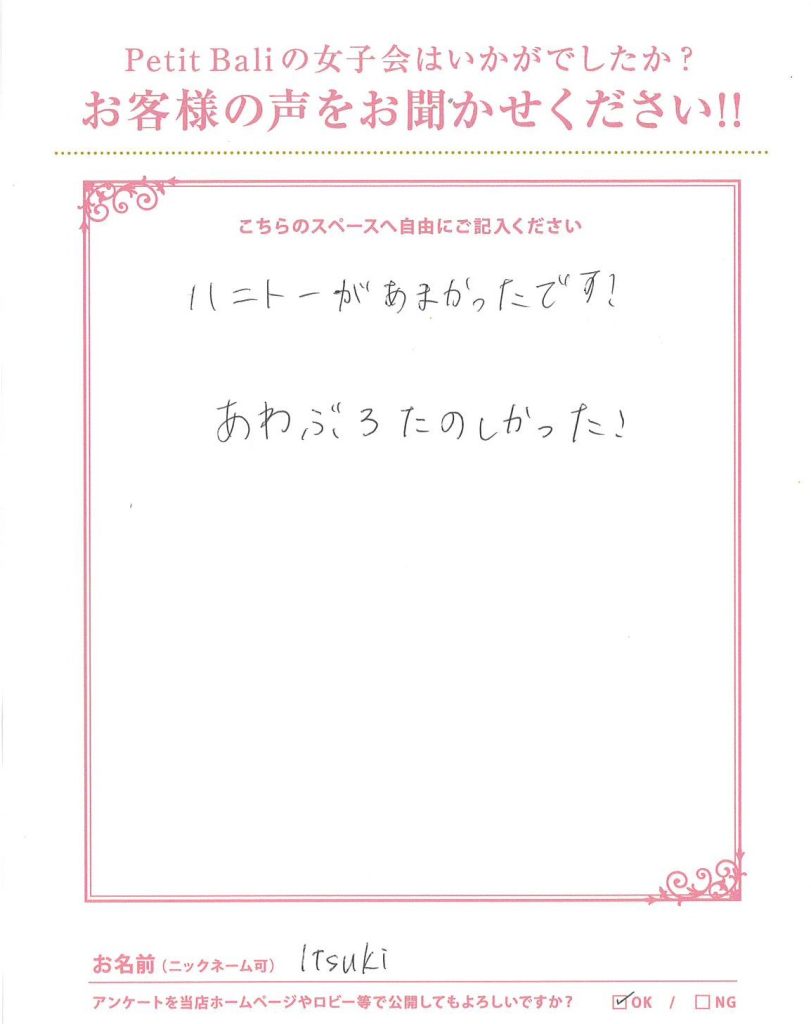 Petit Baliの女子会はいかがでしたか？
お客様の声をお聞かせください!!
こちらのスペースへ自由にご記入ください
ハニトーがあまかったです！
あわぶろたのしかった！
お名前（ニックネーム可） Itsuki
アンケートを当店ホームページやロビー等で公開してもよろしいですか？ ☑OK / □NG